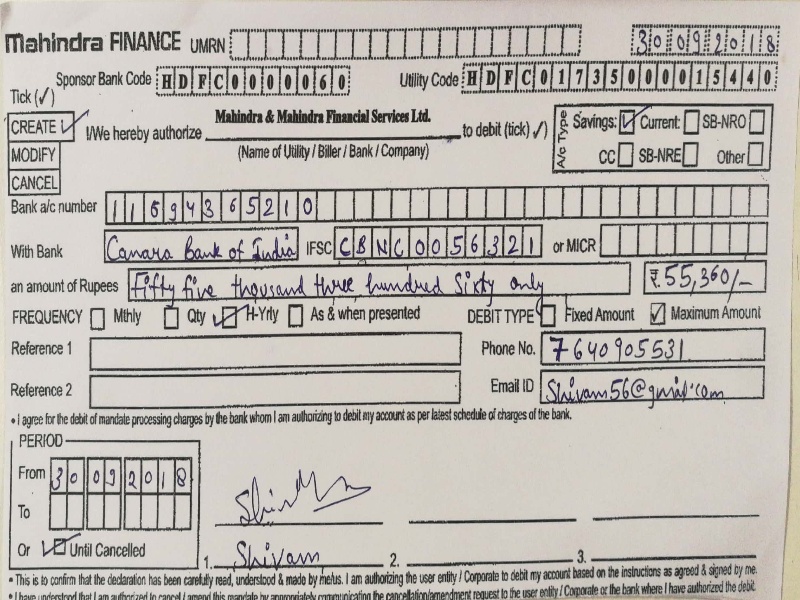 Mahindra FINANCE UMRN 30092018
Sponsor Bank Code HDFC0000060 Utility Code HDFC01735000015440
Tick (✓)
CREATE ✓ I/We hereby authorize Mahindra & Mahindra Financial Services Ltd. to debit (tick) ✓) A/c Type Savings: ✓ Current: SB-NRO
MODIFY (Name of Utility / Biller / Bank / Company) CC SB-NRE Other
CANCEL
Bank a/c number 11694365210
With Bank Canara Bank of India IFSC CBNC0056321 or MICR
an amount of Rupees Fifty five thousand three hundred Sixty only ₹ 55,360/-
FREQUENCY Mthly Qty ✓ H-Yrly As & when presented DEBIT TYPE Fixed Amount ✓ Maximum Amount
Reference 1 Phone No. 7640905531
Reference 2 Email ID Shivam56@gmail.com
• I agree for the debit of mandate processing charges by the bank whom I am authorizing to debit my account as per latest schedule of charges of the bank.
PERIOD
From 30092018
To
Or ✓ Until Cancelled 1. Shivam 2. 3.
• This is to confirm that the declaration has been carefully read, understood & made by me/us. I am authorizing the user entity / Corporate to debit my account based on the instructions as agreed & signed by me.
• I have understood that I am authorized to cancel / amend this mandate by appropriately communicating the cancellation/amendment request to the user entity / Corporate or the bank where I have authorized the debit.